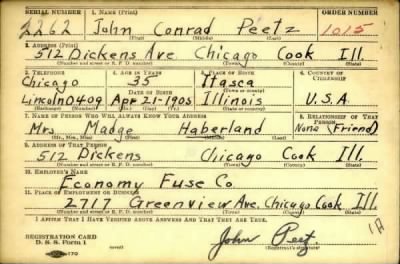 SERIAL NUMBER 1. NAME (Print) ORDER NUMBER
2262 John Conrad Peetz 1015
(First) (Middle) (Last)
2. ADDRESS (Print)
512 Dickens Ave Chicago Cook Ill.
(Number and street or R. F. D. number) (Town) (County) (State)
3. TELEPHONE 4. AGE IN YEARS 5. PLACE OF BIRTH 6. COUNTRY OF CITIZENSHIP
Chicago 35 Itasca
DATE OF BIRTH
Lincoln 0409 Apr-21-1905 Illinois U.S.A
(Exchange) (Number) (Mo.) (Day) (Yr.) (State or country)
7. NAME OF PERSON WHO WILL ALWAYS KNOW YOUR ADDRESS 8. RELATIONSHIP OF THAT PERSON
Mrs Madge Haberland None (Friend)
(Mr., Mrs., Miss) (First) (Middle) (Last)
9. ADDRESS OF THAT PERSON
512 Dickens Chicago Cook Ill.
(Number and street or R. F. D. number) (Town) (County) (State)
10. EMPLOYER'S NAME
Economy Fuse Co.
11. PLACE OF EMPLOYMENT OR BUSINESS
2717 Greenview Ave. Chicago Cook Ill.
(Number and street or R. F. D. number) (Town) (County) (State)
I AFFIRM THAT I HAVE VERIFIED ABOVE ANSWERS AND THAT THEY ARE TRUE.
REGISTRATION CARD
D. S. S. Form 1 John Peetz
(Registrant's signature)